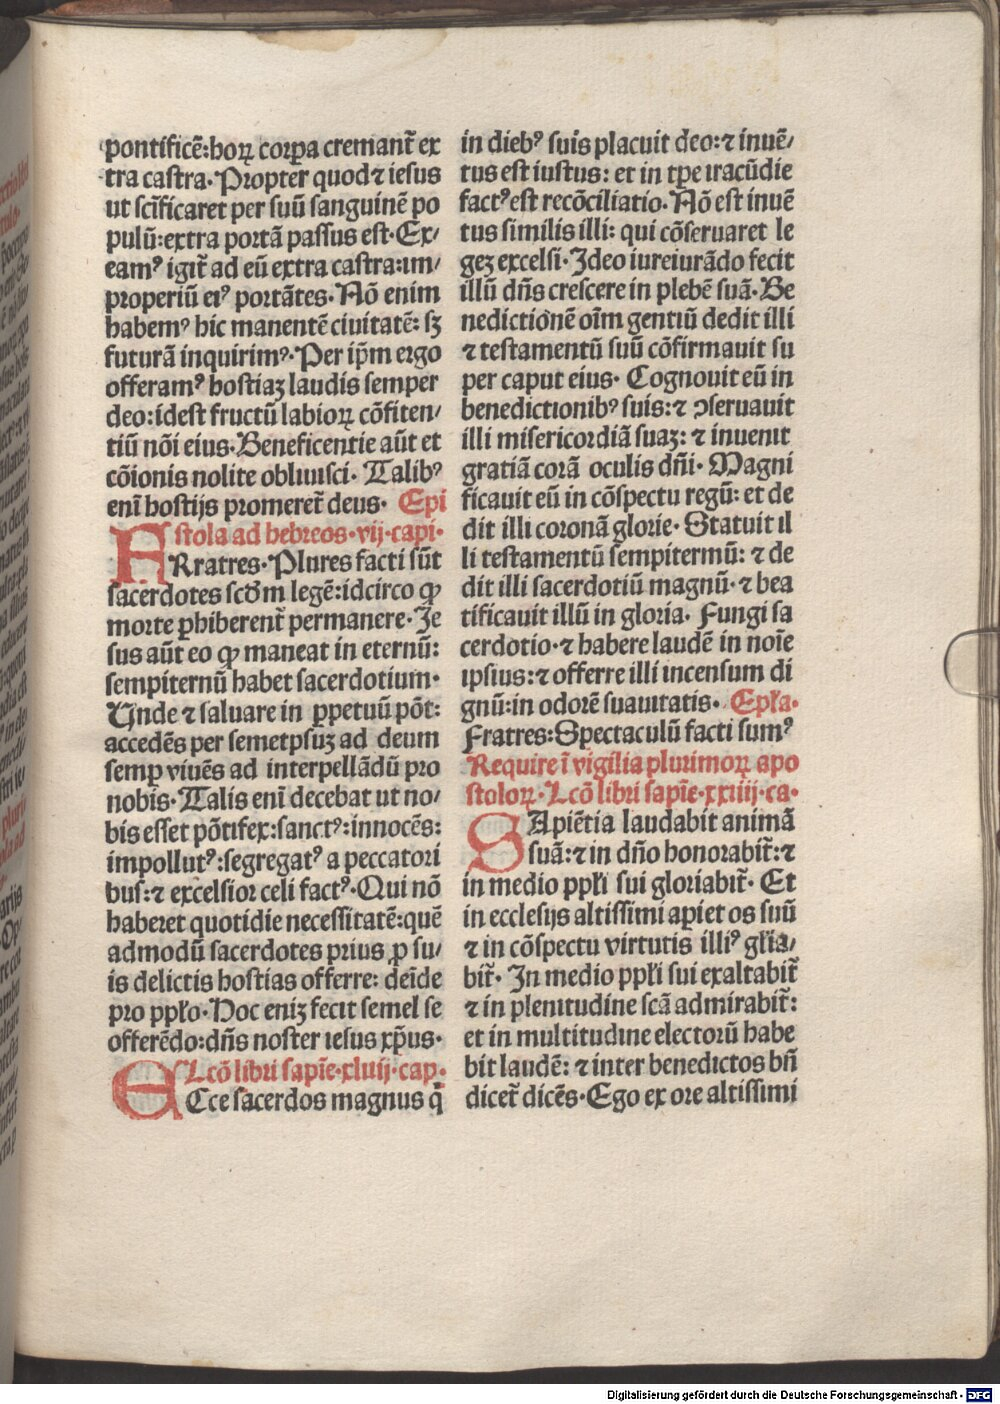 pontificē:horꝝ corꝑa cremant̄ ex
tra castra·Propter quod ⁊ iesus
ut scīficaret per suū sanguinē po
pulū:extra portā passus est·Ex/
eamꝰ igit̄ ad eū extra castra:im/
properiū eiꝰ portātes·Nō enim
habemꝰ hic manentē ciuitatē: sꝫ
futurā inquirimꝰ·Per ip̄m ergo
offeramꝰ hostiaꝫ laudis semper
deo:idest fructū labioꝝ cōfiten/
tiū nōi eius·Beneficentie aūt et
cōionis nolite obliuisci·Talibꝰ
enī hostijs promeret̄ deus· Epi
stola ad hebreos·vij·capi·
FRratres·Plures facti sūt
sacerdotes scd̄m legē:idcirco ꝙ
morte ꝓhiberent̄ permanere·Je
sus aūt eo ꝙ maneat in eternū:
sempiternū habet sacerdotium·
Unde ⁊ saluare in ꝑpetuū pōt:
accedēs per semetpsuꝫ ad deum
semꝑ viuēs ad interpellādū pro
nobis·Talis enī decebat ut no/
bis esset pōtifex:sanctꝰ:innocēs:
impollutꝰ:segregatꝰ a peccatori
bus:⁊ excelsior celi factꝰ·Qui nō
haberet quotidie necessitatē:quē
admodū sacerdotes prius ꝓ su/
is delictis hostias offerre: deīde
pro ppł'o·Hoc eniꝫ fecit semel se
offerēdo:dn̄s noster iesus xp̄us·
Lcō libri sapīe·xliiij·cap·
ECce sacerdos magnus q̄
in diebꝰ suis placuit deo:⁊ inuē/
tus est iustus: et in tꝑe iracūdie
factꝰ est recōciliatio·Nō est inuē
tus similis illi: qui cōseruaret le
geꝫ excelsi·Ideo iureiurādo fecit
illū dn̄s crescere in plebē suā·Be
nedictionē oīm gentiū dedit illi
⁊ testamentū suū cōfirmauit su
per caput eius· Cognouit eū in
benedictionibꝰ suis:⁊ ꝯseruauit
illi misericordiā suaꝫ: ⁊ inuenit
gratiā corā oculis dn̄i·Magni
ficauit eū in cōspectu regū: et de
dit illi coronā glorie·Statuit il
li testamentū sempitermū: ⁊ de
dit illi sacerdotiū magnū·⁊ bea
tificauit illū in gloria. Fungi sa
cerdotio·⁊ habere laudē in noīe
ipsius:⁊ offerre illi incensum di
gnū:in odorē suauitatis· Epła·
Fratres:Spectaculū facti sumꝰ
Require ī vigilia plurimoꝝ apo
stoloꝝ·Lcō libri sapīe·xxiiij·ca·
SApiētia laudabit animā
suā:⁊ in dn̄o honorabit̄:⁊
in medio ppłi sui gloriabit̄· Et
in ecclesijs altissimi aꝑiet os suū
⁊ in cōspectu virtutis illiꝰ głia/
bit̄· In medio ppłi sui exaltabit̄
⁊ in plenitudine scā admirabit̄:
et in multitudine electorū habe
bit laudē: ⁊ inter benedictos bn̄
dicet̄ dicēs·Ego ex ore altissimi
Digitalisierung gefördert durch die Deutsche Forschungsgemeinschaft - DFG